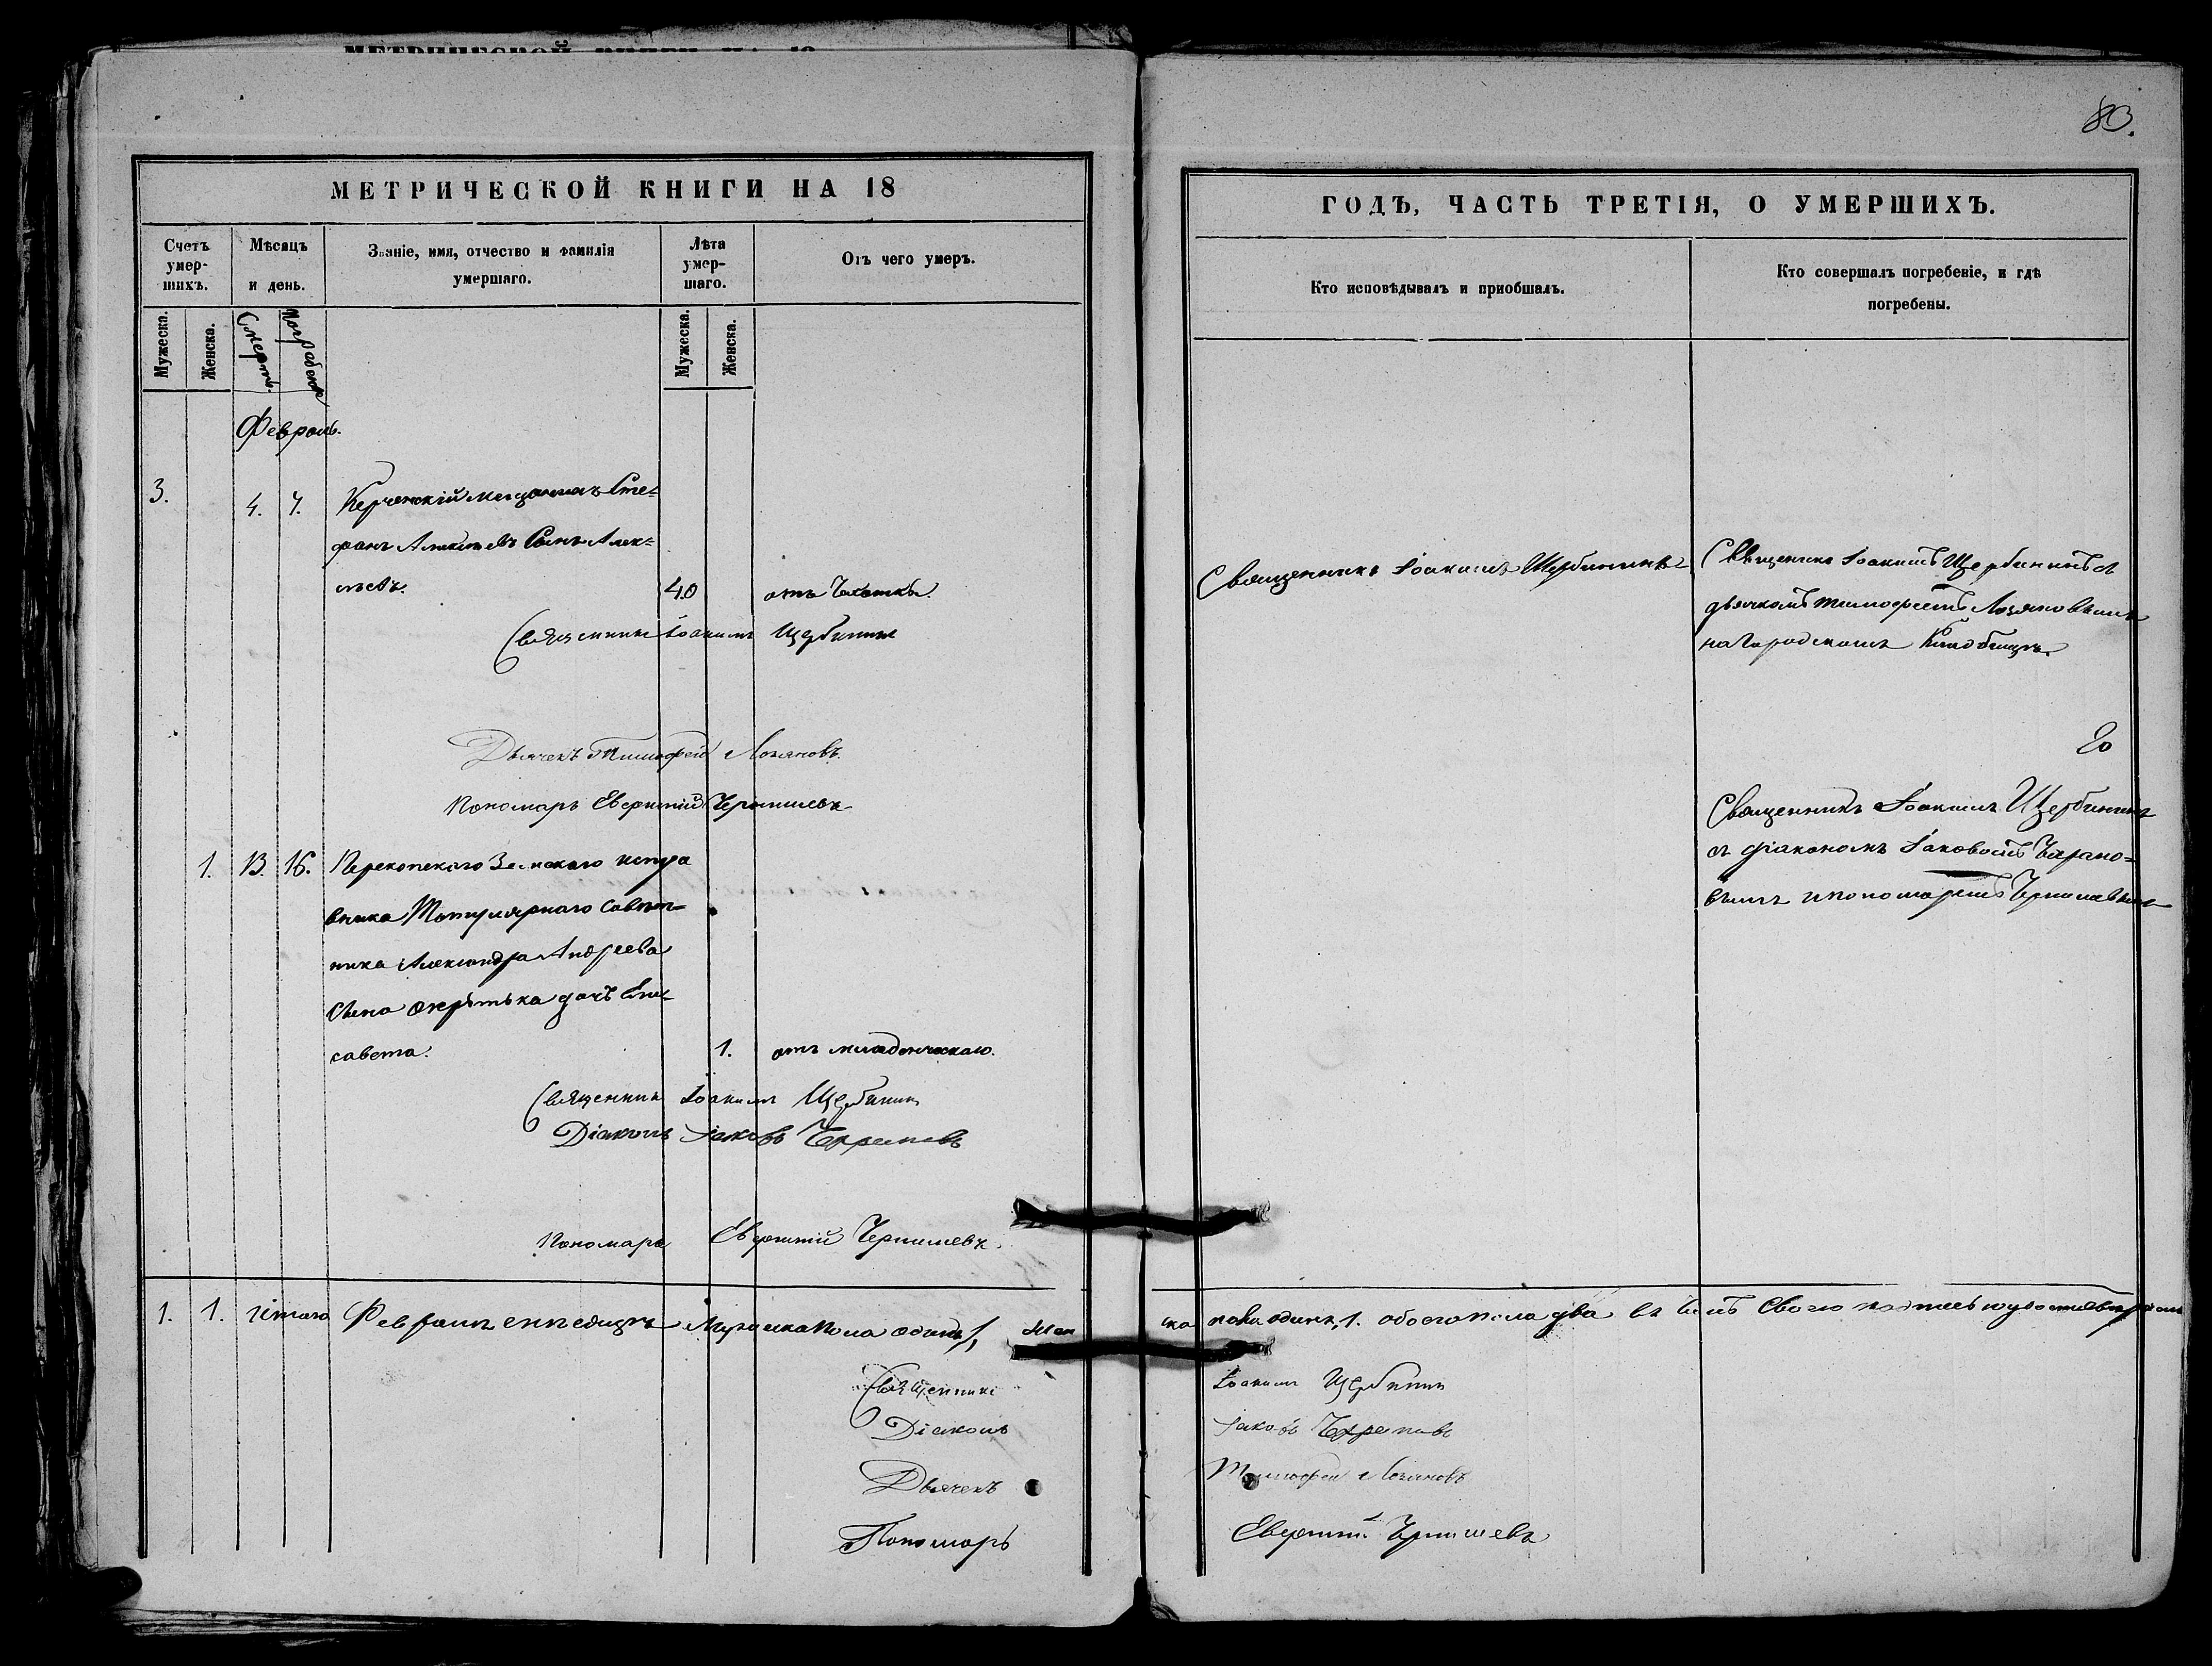 МЕТРИЧЕСКОЙ КНИГИ НА 18
Счетъ умер-шихъ.
Мѣсяцъ и день.
Званіе, имя, отчество и фамилія умершаго.
Лѣта умер-шаго.
Отъ чего умеръ.
Мужеска.
Женска.
Смерти.
Погребенія
Мужеска.
Женска.
Февраль.
3. 4. 7. Керченскій мещанинъ Сте=
фанъ Алексѣевъ Сынъ Алек=
сѣевъ. 40 отъ Чахотки.
Священникъ Іоакимъ Щербинин
Дьячекъ Тимофей Лозяновъ.
Пономарь Евфимій Чернышевъ
1. 13. 16. Перекопскаго Земскаго испра
вника Титулярнаго Совѣт=
ника Александра Андреева
Сына дочъ Ели=
савета. 1. отъ младенческаго.
Священникъ Іоакимъ Щербинин
Діаконъ Іаковъ
Пономарь Евфимій Чернышевъ.
1. 1. Итого Февралѣ мѣсяцѣ Мужеска пола одинъ 1, Жен
Священникъ
Діаконъ
Дьячекъ
Пономарь
80.
ГОДЪ, ЧАСТЬ ТРЕТІЯ, О УМЕРШИХЪ.
Кто исповѣдывалъ и пріобщалъ.
Кто совершалъ погребеніе, и гдѣ погребены.
Священникъ Іоакимъ Щербининъ
Священикъ Іоакимъ Щербининъ съ
дьячкомъ Тимофеемъ Лозяновымъ
на Городскомъ Кладбищѣ.
Священникъ Іоакимъ Щербининъ
съ діакономъ Іаковомъ
вымъ и пономаремъ Чернышевымъ
ска пола одинъ, 1. обоего пола два въ Своею подписью
Іоакимъ Щербинин
Іаковъ
Тимофей Лозяновъ
Евфимій Чернышевъ